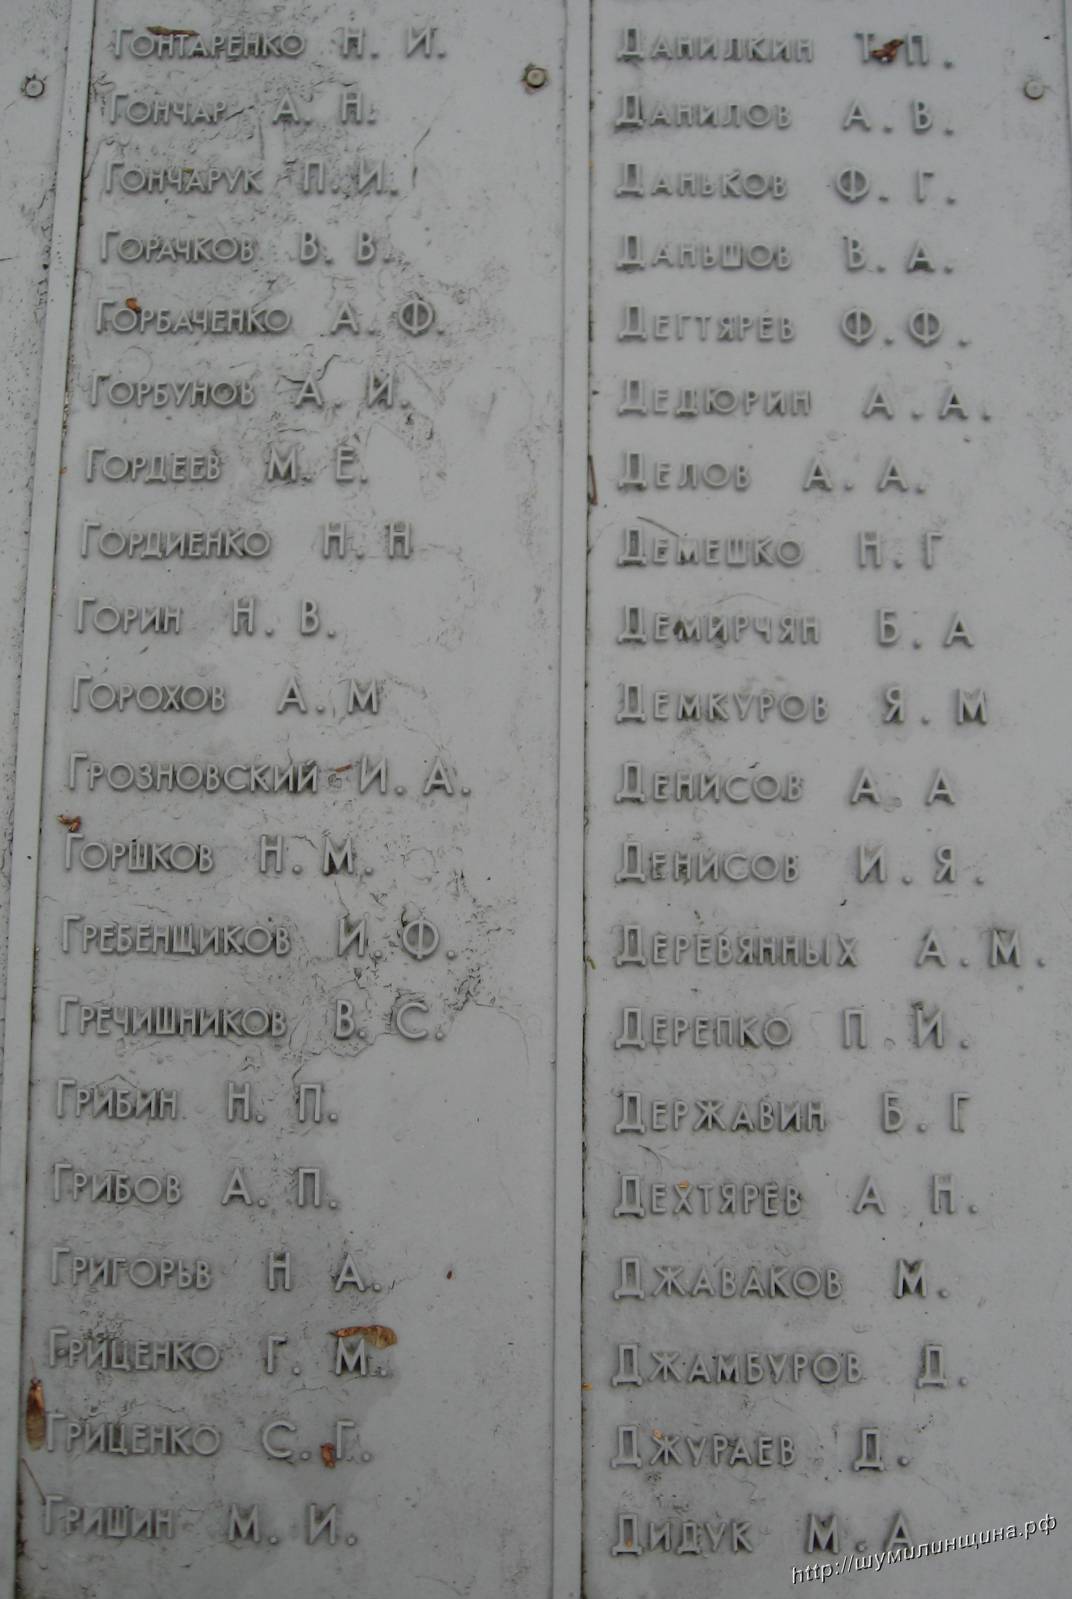 Гонтаренко Н. И.
Гончар А. Н.
Гончарук П. И.
Горачков В. В.
Горбаченко А. Ф.
Горбунов А. И.
Гордеев М. Е.
Гордиенко Н. Н
Горин Н. В.
Горохов А. М
Грозновский И. А.
Горшков Н. М.
Гребенщиков И. Ф.
Гречишников В. С.
Грибин Н. П.
Грибов А. П.
Григорьв Н А.
Гриценко Г. М.
Гриценко С. Г.
Гришин М. И.
Данилкин Т. П.
Данилов А. В.
Даньков Ф. Г.
Даньшов В. А.
Дегтярев Ф. Ф.
Дедюрин А. А.
Делов А. А.
Демешко Н. Г
Демирчян Б. А
Демкуров Я. М
Денисов А. А
Денисов И. Я.
Деревянных А. М.
Дерепко П. И.
Державин Б. Г
Дехтярев А Н.
Джаваков М.
Джамбуров Д.
Джураев Д.
Дидук М. А
http://шумилинщина.рф